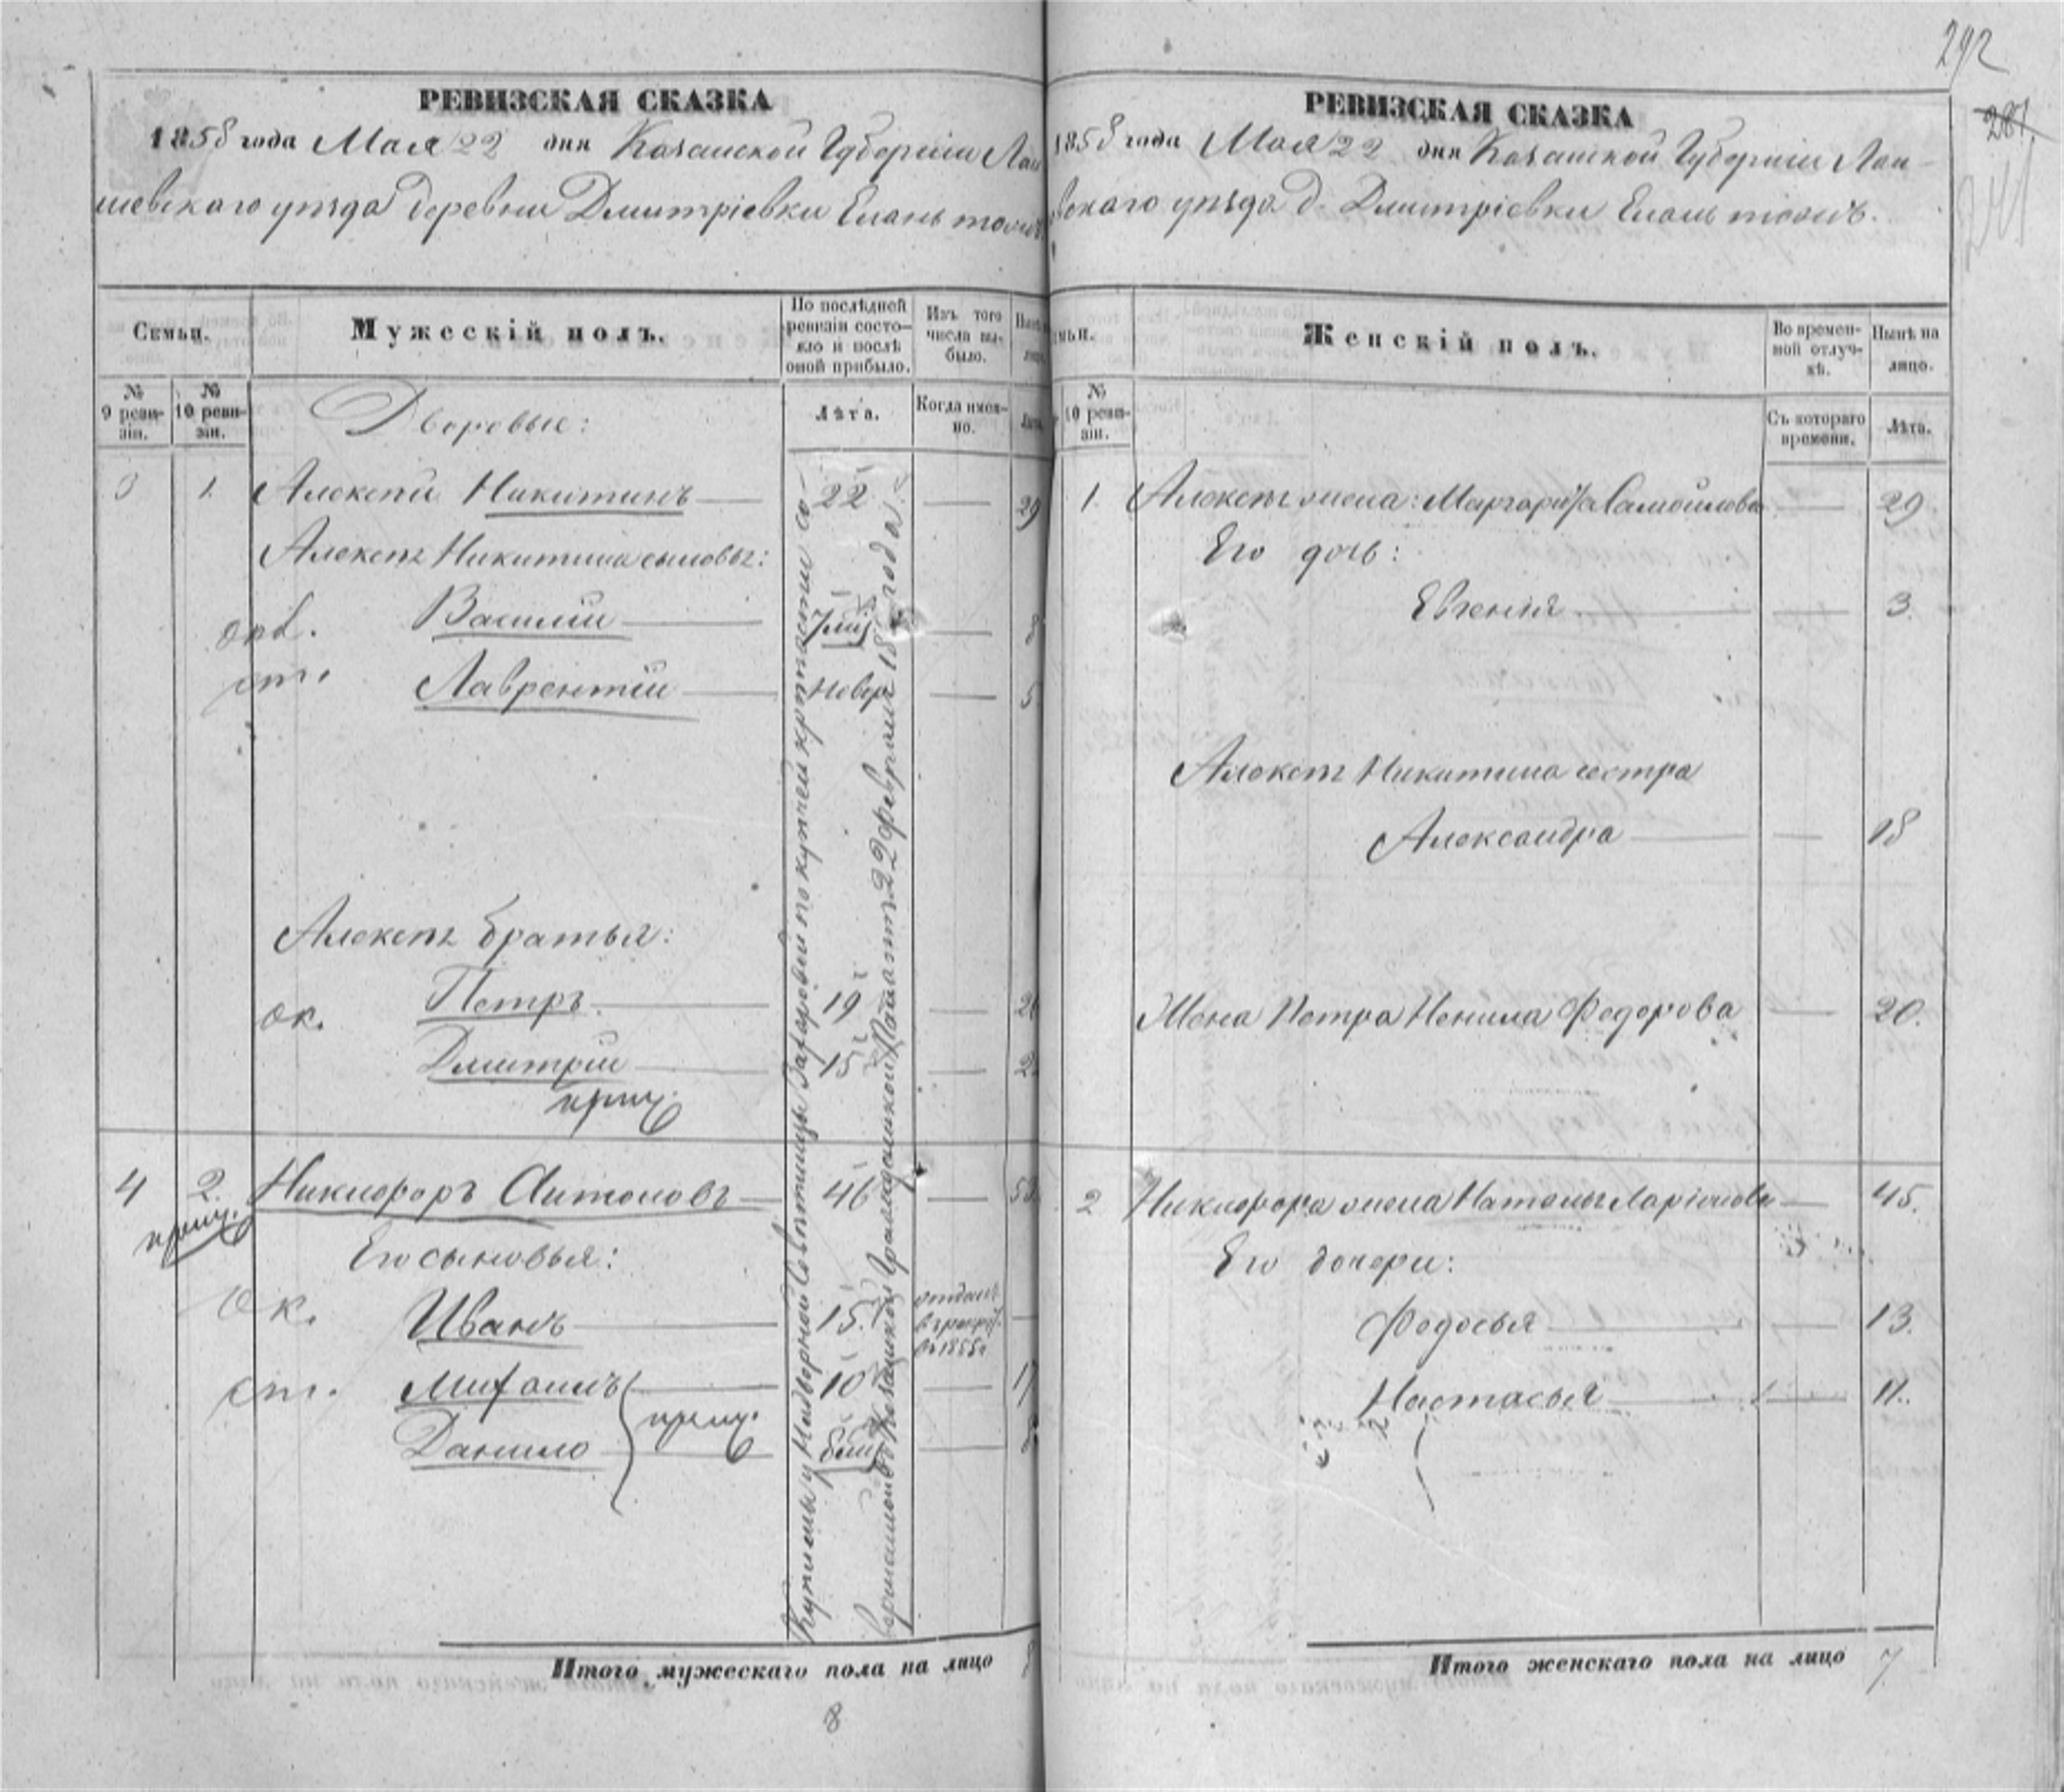 292
281
РЕВИЗСКАЯ СКАЗКА
1858 года Мая 22 дня Казанской Губерніи Лаи
шевскаго уѣзда деревни Дмитріевки Елань тожъ
Семьи.
Мужескій полъ.
По послѣдней ревизіи состо-
яло и послѣ
оной прибыло.
Изъ того
числа вы-
было.
№
9 реви-
зіи.
№
10 реви-
зіи.
Лѣта.
Когда имен-
но.
Дворовые:
1. Алексѣй Никитинъ 22 29
Алексѣя Никитина сыновья:
Василій 8
ст. Лаврентій Новор 5
Алексѣя братья:
ок. Петръ 19 26
Дмитрій 15
4 2. Никифоръ Антоновъ 46
Его сыновья:
ок. Иванъ 15 отданъ
въ рекр.
въ 1855
ст. Михаилъ 10 17
Данило 8
Куплены у Надворной Совѣтницы по купчей крѣпости со-
вершенной въ Казанской Гражданской Палатѣ 22 февраля 18 года.
Итого мужескаго пола на лицо 8
8
РЕВИЗСКАЯ СКАЗКА
1858 года Мая 22 дня Казанской Губерніи Лаи-
вскаго уѣзда д. Дмитріевки Елань тожъ.
мьи.
Женскій полъ.
Во времен-
ной отлуч-
кѣ.
Нынѣ на
лицо.
№
10 реви-
зіи.
Съ котораго
времени.
Лѣта.
1. Алексѣя жена: Маргарита Самойлова 29
Его дочь:
Евгенія 3.
Алексѣя Никитина сестра
Александра 18
Жена Петра Ненила Федорова 20.
2 Никифора жена Наталья Ларіонова 45.
Его дочери:
Федосья 13.
Настасья 11.
Итого женскаго пола на лицо 7